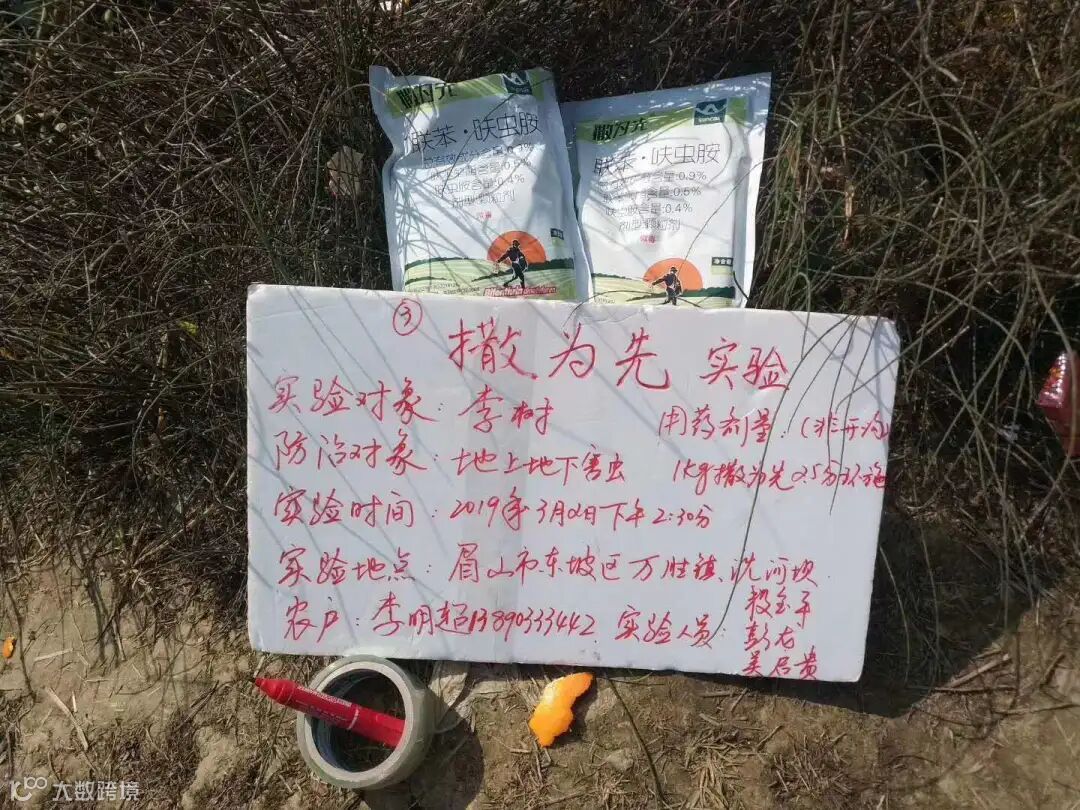 撒为先
联苯·呋虫胺
呋虫胺含量:0.4%
剂型:颗粒剂
微毒
撒为先
联苯·呋虫胺
总有效成分含量:0.9%
联苯菊酯含量:0.5%
呋虫胺含量:0.4%
剂型:颗粒剂
微毒
净含量
③
撒为先 实验
实验对象：李树
用药剂量：(非开沟)
防治对象：地上地下害虫
1kg撒为先
实验时间：2019年3月2日下午2:30分
实验地点：眉山市东坡区万胜镇、沈河坝
农户：李明超13890333442
实验人员：
彭龙
吴居贵
大数跨境